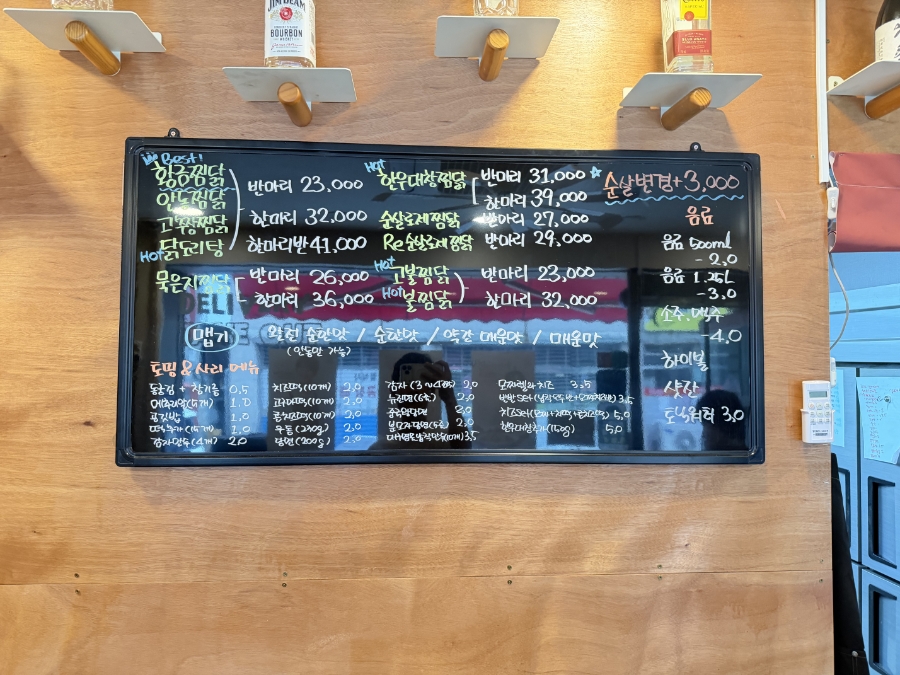 JIM BEAM
BOURBON
Best!
황금찜닭
안동찜닭
고추장찜닭
Hot 닭도리탕
반마리 23,000
한마리 32,000
한마리반 41,000
묵은지찜닭
반마리 26,000
한마리 36,000
Hot
한우대창찜닭
반마리 31,000 ☆
한마리 39,000
순살로제찜닭 반마리 27,000
Re순살로제찜닭 반마리 29,000
Hot
고불찜닭
Hot 불찜닭
반마리 23,000
한마리 32,000
순살변경+3,000
음료
음료 500ml
- 2,0
음료 1.25L
- 3,0
소주, 맥주
- 4,0
하이볼
샷잔
토닉워터 3,0
맵기
완전 순한맛 / 순한맛 / 약간 매운맛 / 매운맛
(안동만 가능)
토핑 & 사리 메뉴
동훈김 + 참기름 0,5
메추리알(5개) 1,0
공기밥 1,0
1,0
감자만두(4개) 2,0
치즈떡(10개) 2,0
고구마떡(10개) 2,0
콘치즈떡(10개) 2,0
우동(230g) 2,0
당면(200g) 2,0
감자(3~4조각) 2,0
누룽지(6개) 2,0
중국당면 2,0
분모자당면(5개) 2,0
3,5
모짜렐라 치즈 3,5
3,5
5,0
한우대창추가(150g) 5,0